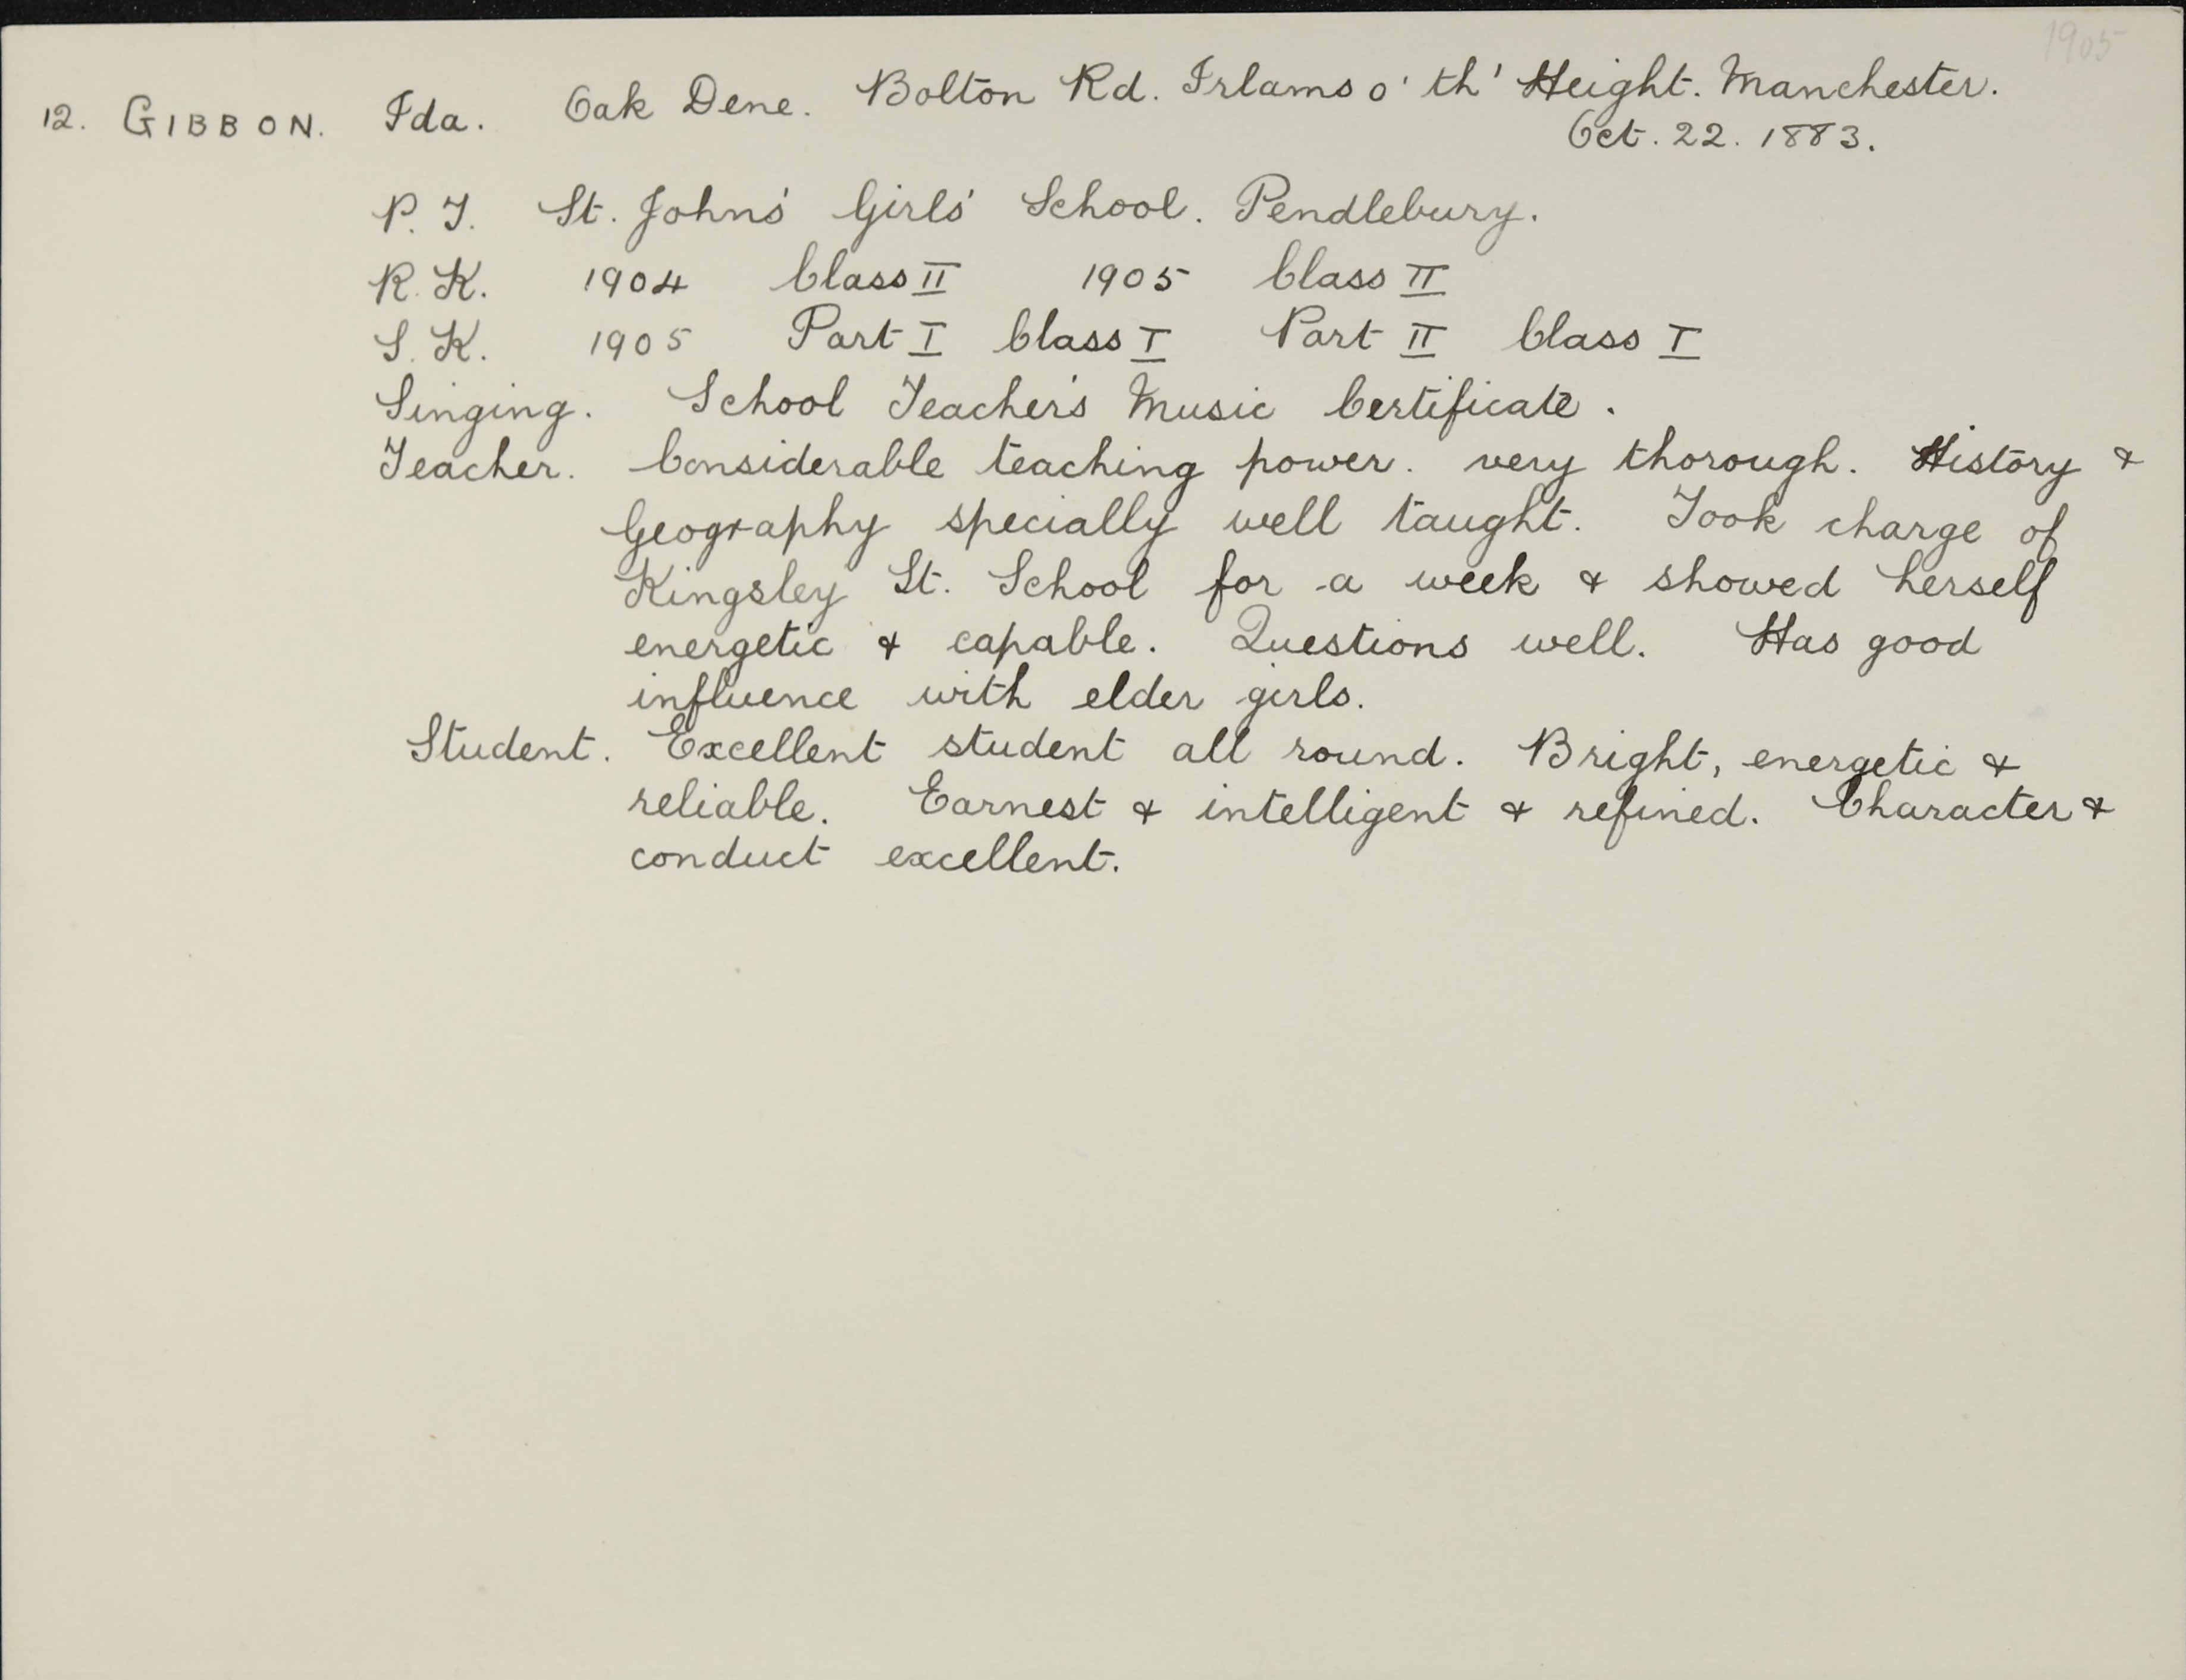 1905
12. GIBBON. Ida. Oak Dene. Bolton Rd. Irlams o' th' Height. Manchester.
Oct. 22. 1883.
P.T. St. Johns' Girls' School. Pendlebury.
R.K. 1904 Class II 1905 Class II
S.K. 1905 Part I Class I Part II Class I
Singing. School Teacher's Music Certificate.
Teacher. Considerable teaching power. very thorough. History &
Geography specially well taught. Took charge of
Kingsley St. School for a week & showed herself
energetic & capable. Questions well. Has good
influence with elder girls.
Student. Excellent student all round. Bright, energetic &
reliable. Earnest & intelligent & refined. Character &
conduct excellent.